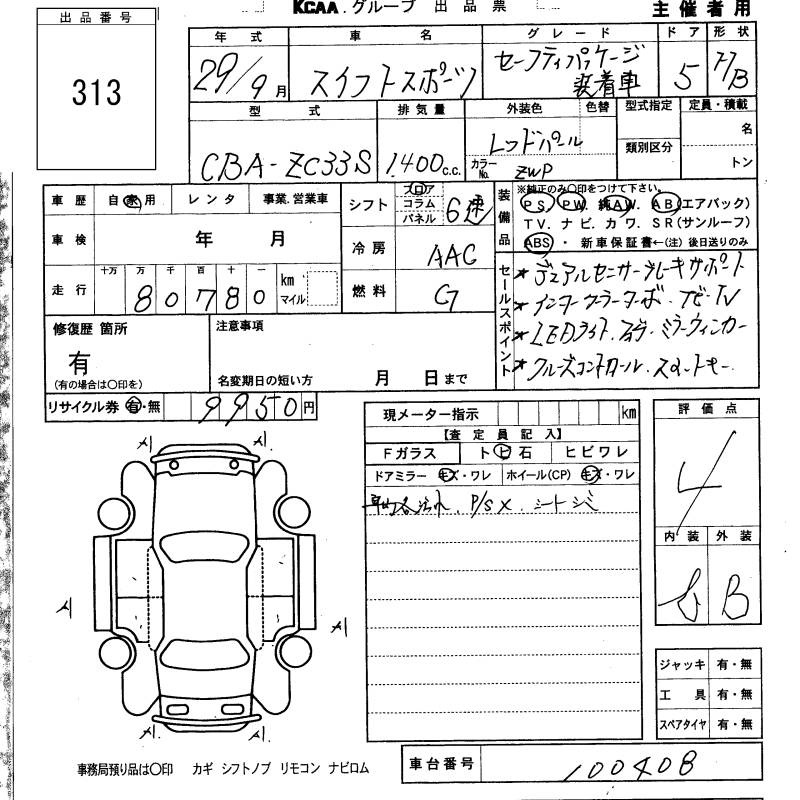 KCAA.グループ 出品票 主催者用
出品番号
313
年式 車名 グレード ドア 形状
29/9月 スイフトスポーツ セーフティパッケージ 装着車 5 H/B
型式 排気量 外装色 色替 型式指定 定員・積載
CBA-ZC33S 1.400c.c. レッドパール 類別区分 名
カラーNo. ZWP トン
車歴 自家用 レンタ 事業.営業車 シフト フロア コラム パネル 6速
車検 年 月 冷房 AAC
走行 十万 万 千 百 十 一 km マイル 燃料 G
80780
装備品 ※純正のみ〇印をつけて下さい。
PS. PW. 純AW. AB(エアバック)
TV. ナビ. カワ. SR(サンルーフ)
ABS ・ 新車保証書←(注)後日送りのみ
セールスポイント
★デュアルセンサーブレーキサポート
★インタークーラーターボ・ナビ・TV
★LEDライト. ミラーウィンカー
★クルーズコントロール. スマートキー
修復歴 箇所
有
(有の場合は〇印を)
注意事項
名変期日の短い方 月 日まで
リサイクル券 有・無 9950円
現メーター指示 km
【査定員記入】
Fガラス ト ビ 石 ヒビワレ
ドアミラー キズ・ワレ ホイール(CP) キズ・ワレ
P/S X. シートシミ
評価点
4
内装 外装
B
メ メ
メ メ
メ メ
ジャッキ 有・無
工具 有・無
スペアタイヤ 有・無
事務局預り品は〇印 カギ シフトノブ リモコン ナビロム
車台番号 100408